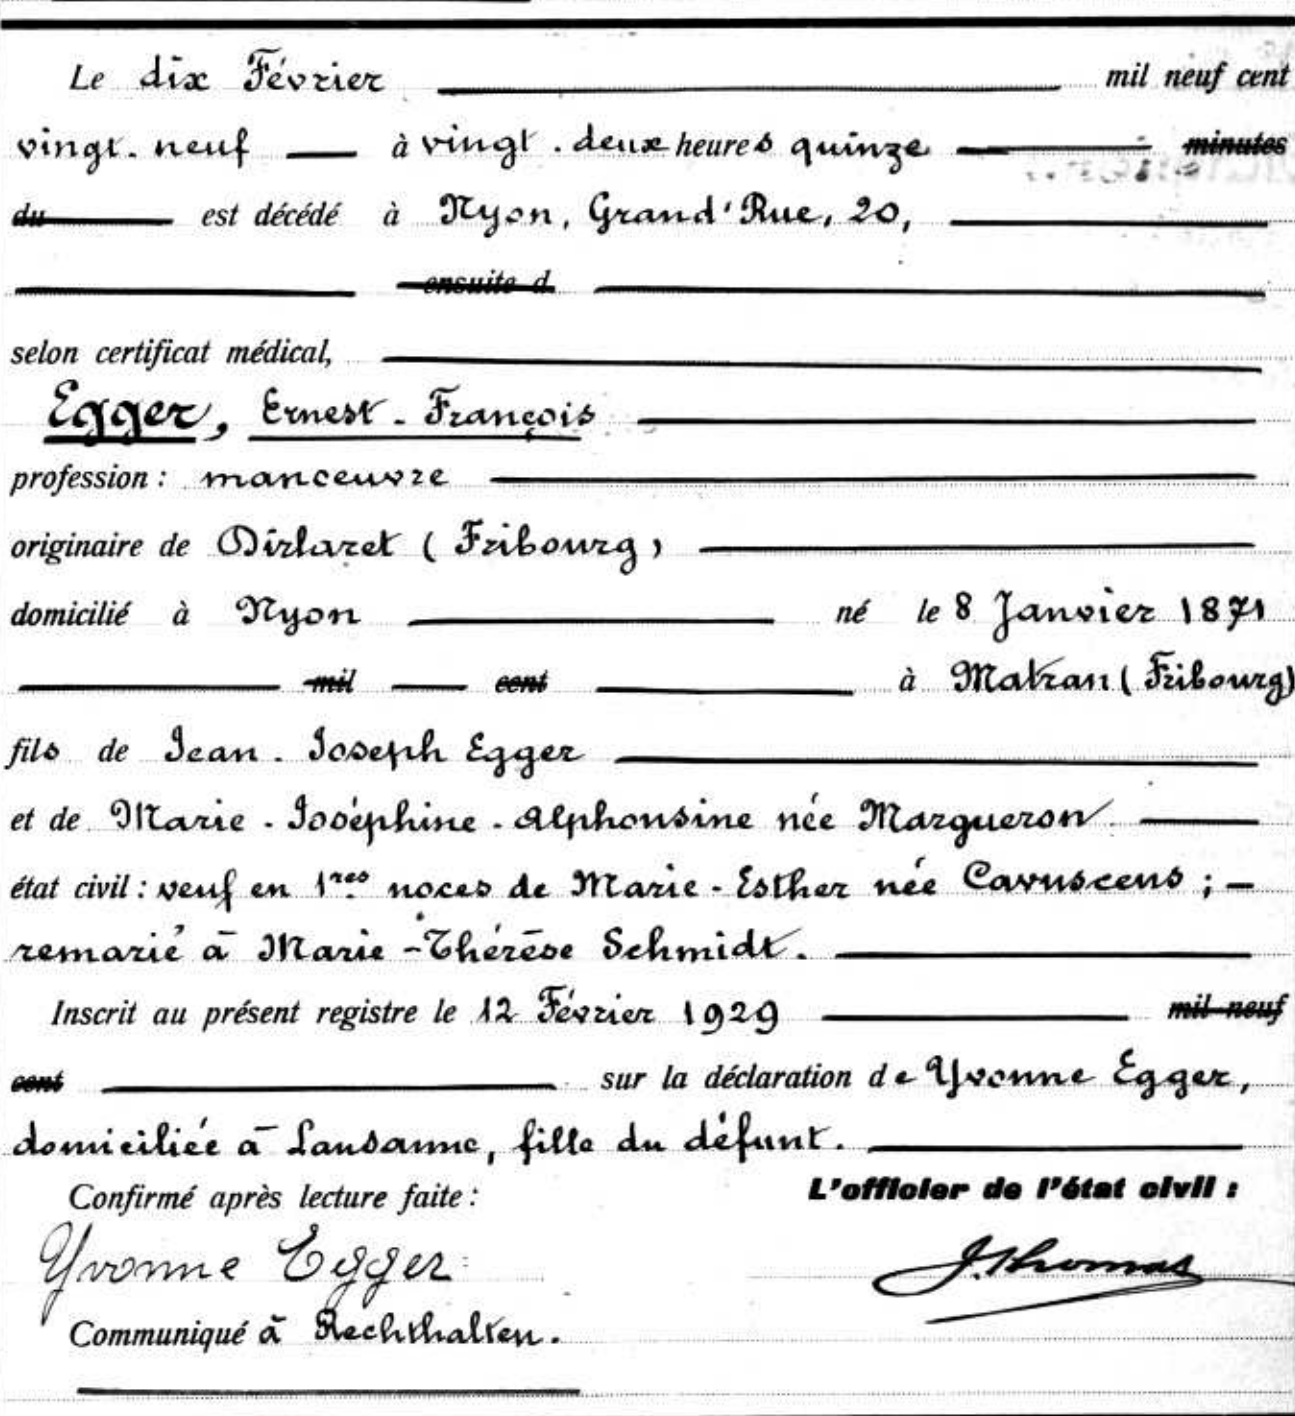 Le dix Février mil neuf cent
vingt-neuf à vingt-deux heures quinze minutes
du est décédé à Nyon, Grand'Rue, 20,
ensuite d
selon certificat médical,
Egger, Ernest-François
profession : manœuvre
originaire de Dirlaret (Fribourg)
domicilié à Nyon né le 8 Janvier 1871
mil cent à Matran (Fribourg)
fils de Jean-Joseph Egger
et de Marie-Joséphine-Alphonsine née Margueron
état civil : veuf en 1res noces de Marie-Esther née Cavuscens ;
remarié à Marie-Thérèse Schmidt.
Inscrit au présent registre le 12 Février 1929 mil neuf
cent sur la déclaration de Yvonne Egger,
domiciliée à Lausanne, fille du défunt.
Confirmé après lecture faite : L'officier de l'état civil :
Yvonne Egger J. Thomas
Communiqué à Rechthalten.